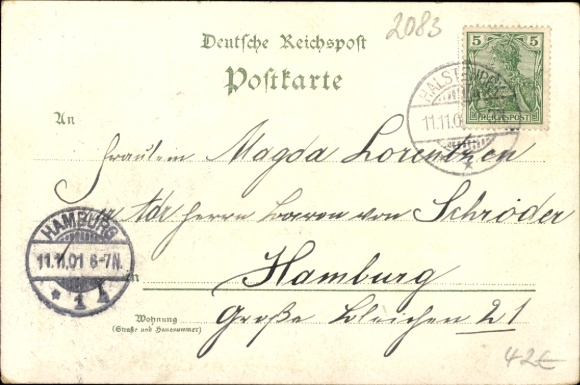 2083
Deutsche Reichspost
Postkarte
5 5
REICHSPOST
11.11.01
An
Fräulein Magda Lorentzen
Adr Herrn Baron von Schröder
HAMBURG
11.11.01 6-7N.
* 1
in Hamburg
Wohnung
(Straße und Hausnummer)
Große Bleichen 21
42€